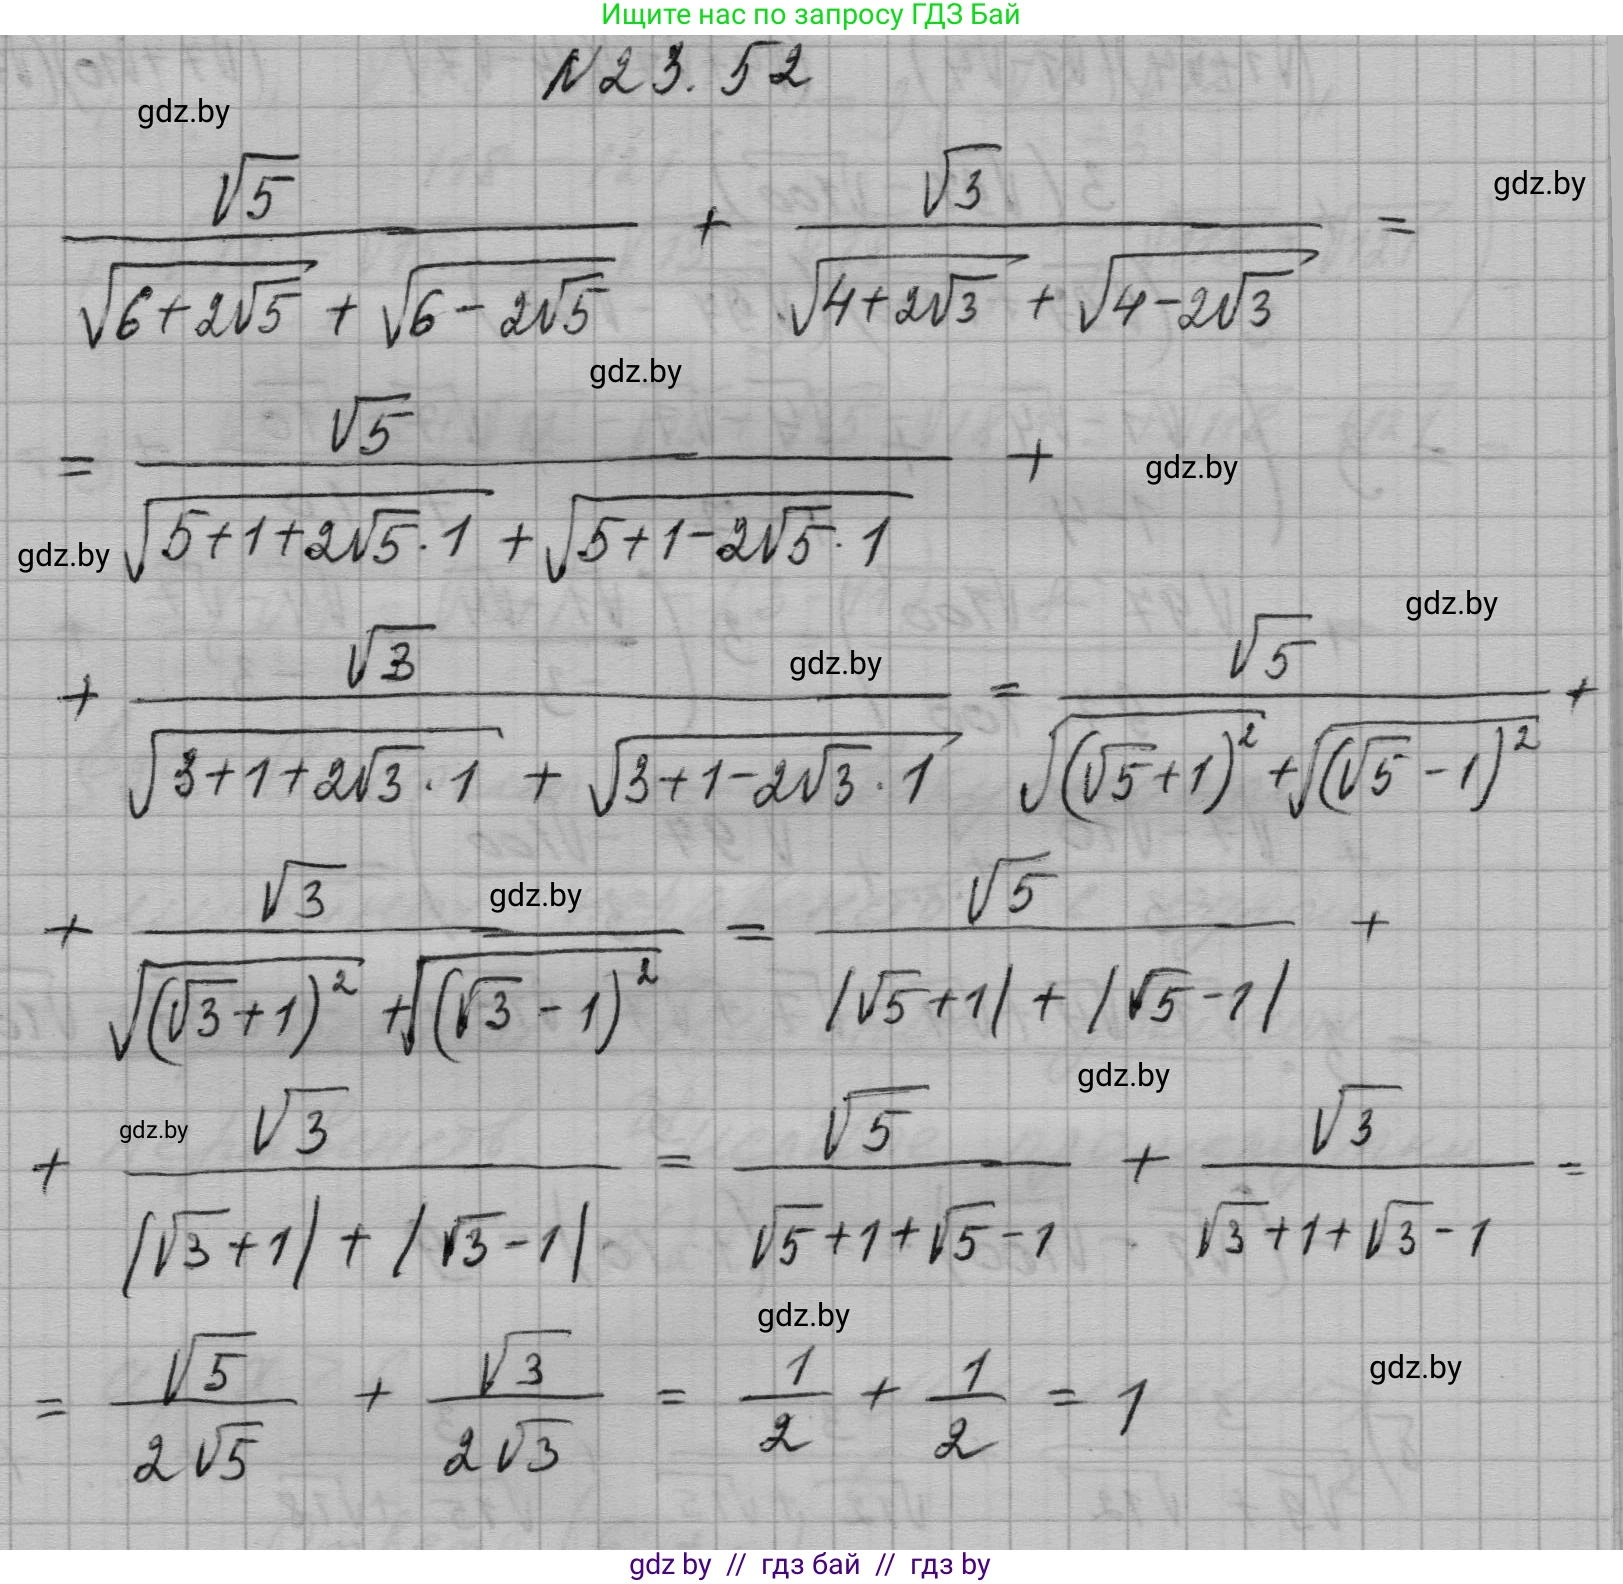 Ищите нас по запросу ГДЗ Бай
N23.52
gdz.by
√5/(√(6+2√5) + √(6-2√5)) + √3/(√(4+2√3) + √(4-2√3)) =
gdz.by
gdz.by
= √5/(√(5+1+2√5·1) + √(5+1-2√5·1)) +
gdz.by
gdz.by
gdz.by
+ √3/(√(3+1+2√3·1) + √(3+1-2√3·1)) = √5/(√((√5+1)²) + √((√5-1)²)) +
gdz.by
+ √3/(√((√3+1)²) + √((√3-1)²)) = √5/(|√5+1| + |√5-1|) +
gdz.by
gdz.by
gdz.by
+ √3/(|√3+1| + |√3-1|) = √5/(√5+1+√5-1) + √3/(√3+1+√3-1) =
gdz.by
= √5/(2√5) + √3/(2√3) = 1/2 + 1/2 = 1
gdz.by
gdz by // гдз бай // гдз by